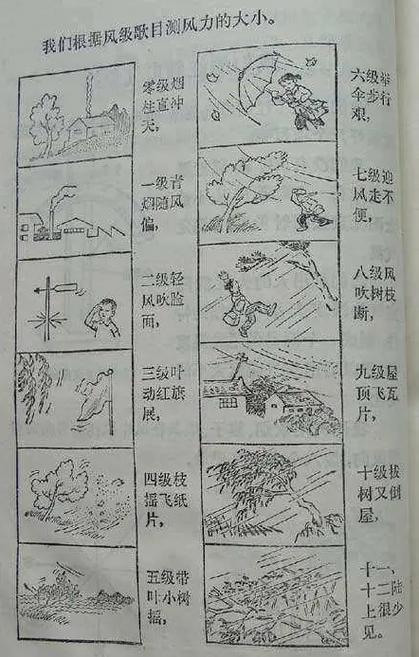 我们根据风级歌目测风力的大小。
零级烟
柱直冲
天，
一级青
烟随风
偏，
二级轻
风吹脸
面，
三级叶
动红旗
展，
四级枝
摇飞纸
片，
五级带
叶小树
摇，
六级举
伞步行
艰，
七级迎
风走不
便，
八级风
吹树枝
断，
九级屋
顶飞瓦
片，
十级拔
树又倒
屋，
十一、
十二陆
上很少
见。